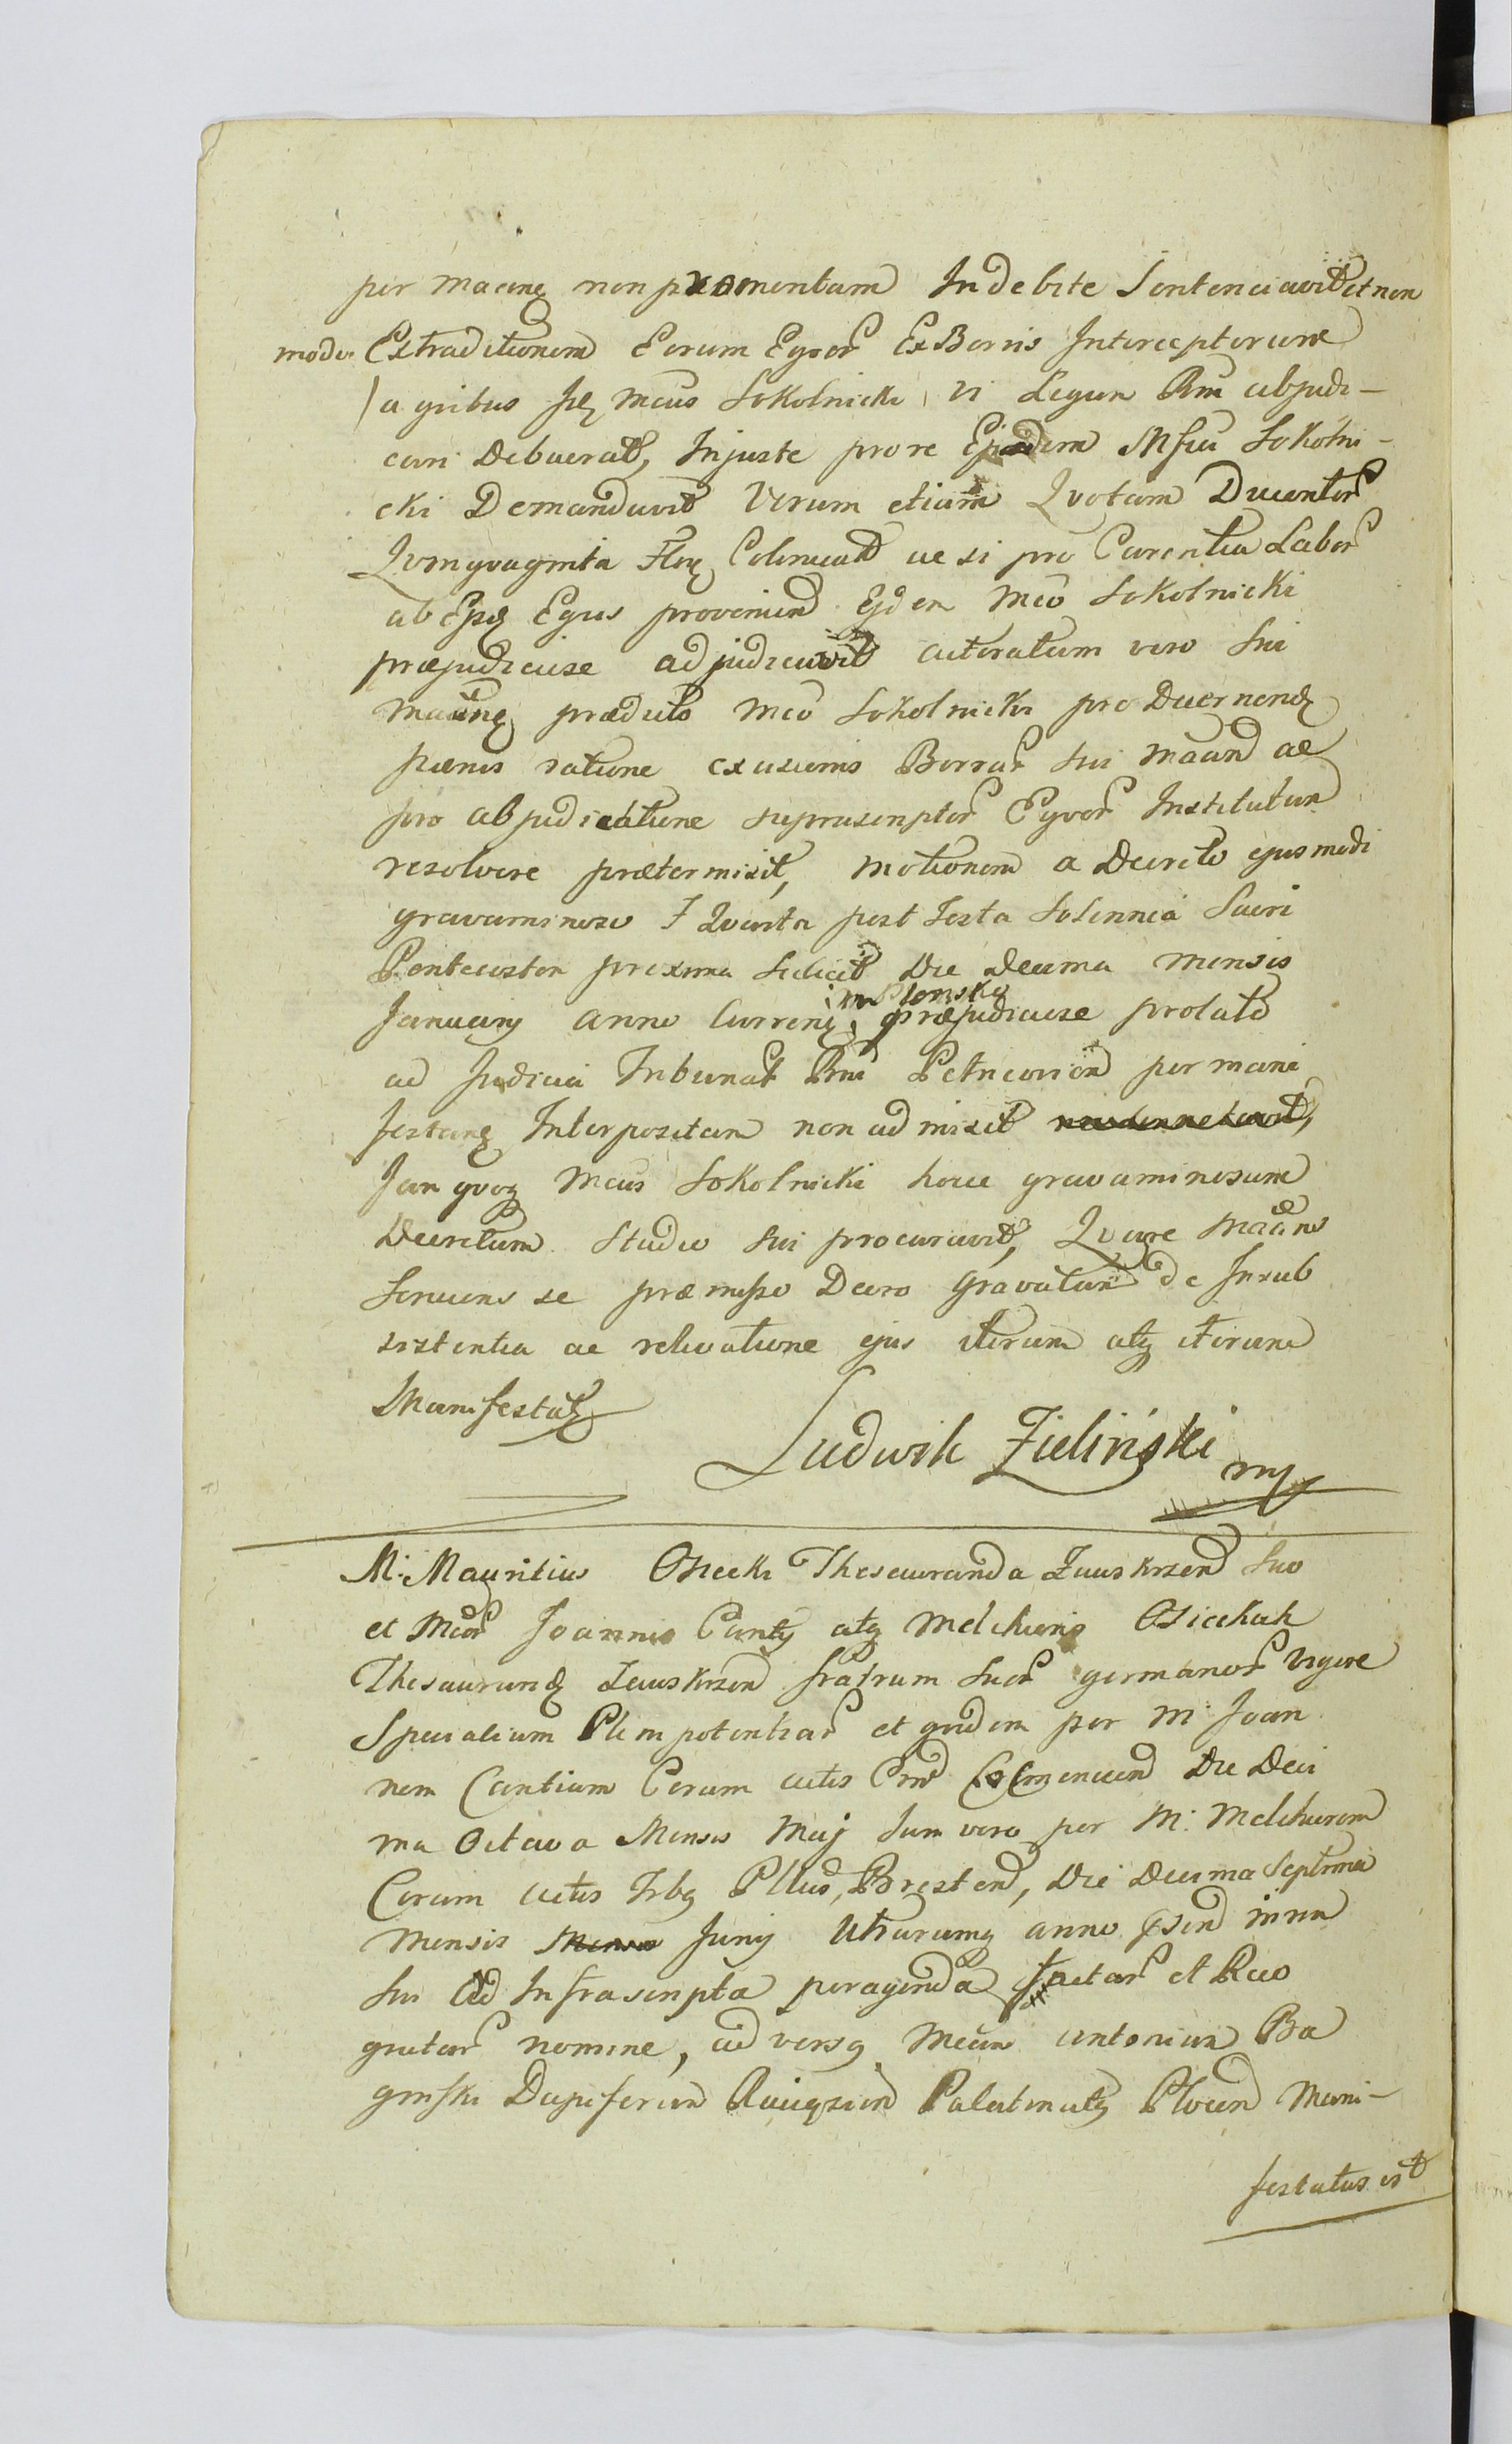 per macne non promentam Indebite Sentenciavit et non
modo Extraditionem Eorum Eqvor Ex Borris Interceptorum
a qvibus Meus Sokolnicki vi Legum Rni abjudi-
cari Debuerat, Injuste pro re Ejusdem Mfci Sokolni-
cki Demandavit Verum etiam Qvotam Ducentor
Qvinqvaginta Flor Polonical ac si pro Carentia Labor
ab Eqvis provenien Ejdem Mco Sokolnicki
præjudiciose adjudicavit Actoratum vero Sui
præducto Mco Sokolnicki pro Decernend
pænis ratione exusionis Borrar Sui ac
pro abjudicatione suprascriptor Eqvor Institutum
resolvere prætermisit, motionem a Decreto ejusmodi
gravaminoso F Qvarta post Festa Solennia Sacri
Pentecosten proxima Scilicet Die Decima Mensis
in Plonsko
January Anno Curren præjudiciose prolato
ad Judicia Tribunal Rni Petricovien per mani
festan Interpositam non admisit
Jam qvoq Mcus Sokolnicki hocce gravaminosum
Decretum Studio Sui procuravit, Qvare
Sentiens se præmisso Dcro Gravatum de Insub
sistentia ac relevatione ejus iterum atq iterum
Manifestat
Ludwik Zieliński mp
M. Mauritius Osiecki Thesaurarida Zawskrzen Suo
et Mcor Joannis Canty atq Melchioris Osieckich
Thesaurarid Zawskrzen fratrum Suor germanor Vigore
Specialium Plenipotentiar et qvidem per M. Joan
nem Cantium Coram Actis Die Deci
ma Octava Mensis Maj Tum vero per M. Melchiorem
Coram Actis Bresten, Die Decima Septima
Mensis Juny Utrarumq anno
Sui Ad Infrascripta peragenda factar et Reco
gnitar nomine, adversq Mcum Antonium Ba
ginski Dapiferum Raciązien Palatinatq Plocen Mani-
festatus est